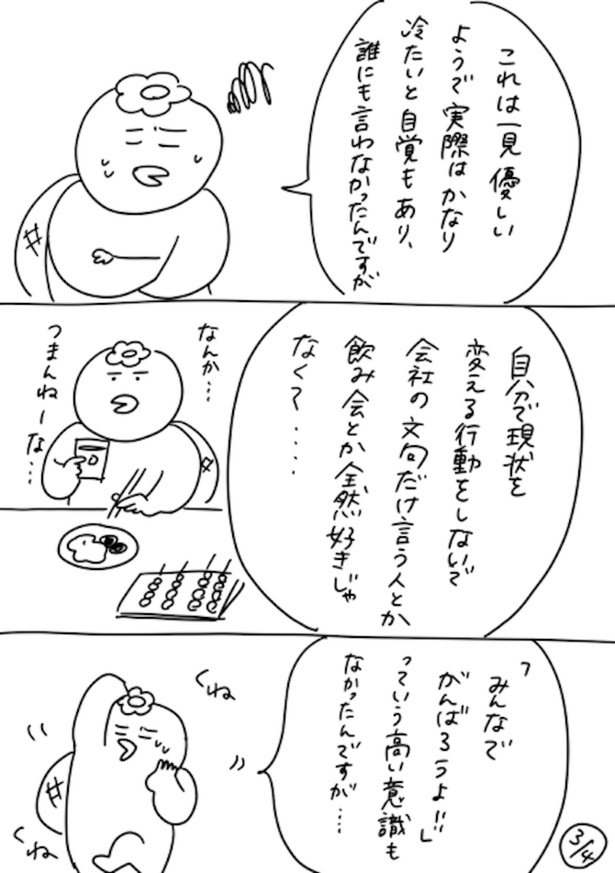 これは一見優しい
ようで実際はかなり
冷たいと自覚もあり、
誰にも言わなかったんですが
自分で現状を
変える行動をしないで
会社の文句だけ言う人とか
飲み会とか全然好きじゃ
なくて....
なんか…
つまんねーな…
「みんなで
がんばろうよ!!」
っていう高い意識も
なかったんですが…
くね
くね
3/4